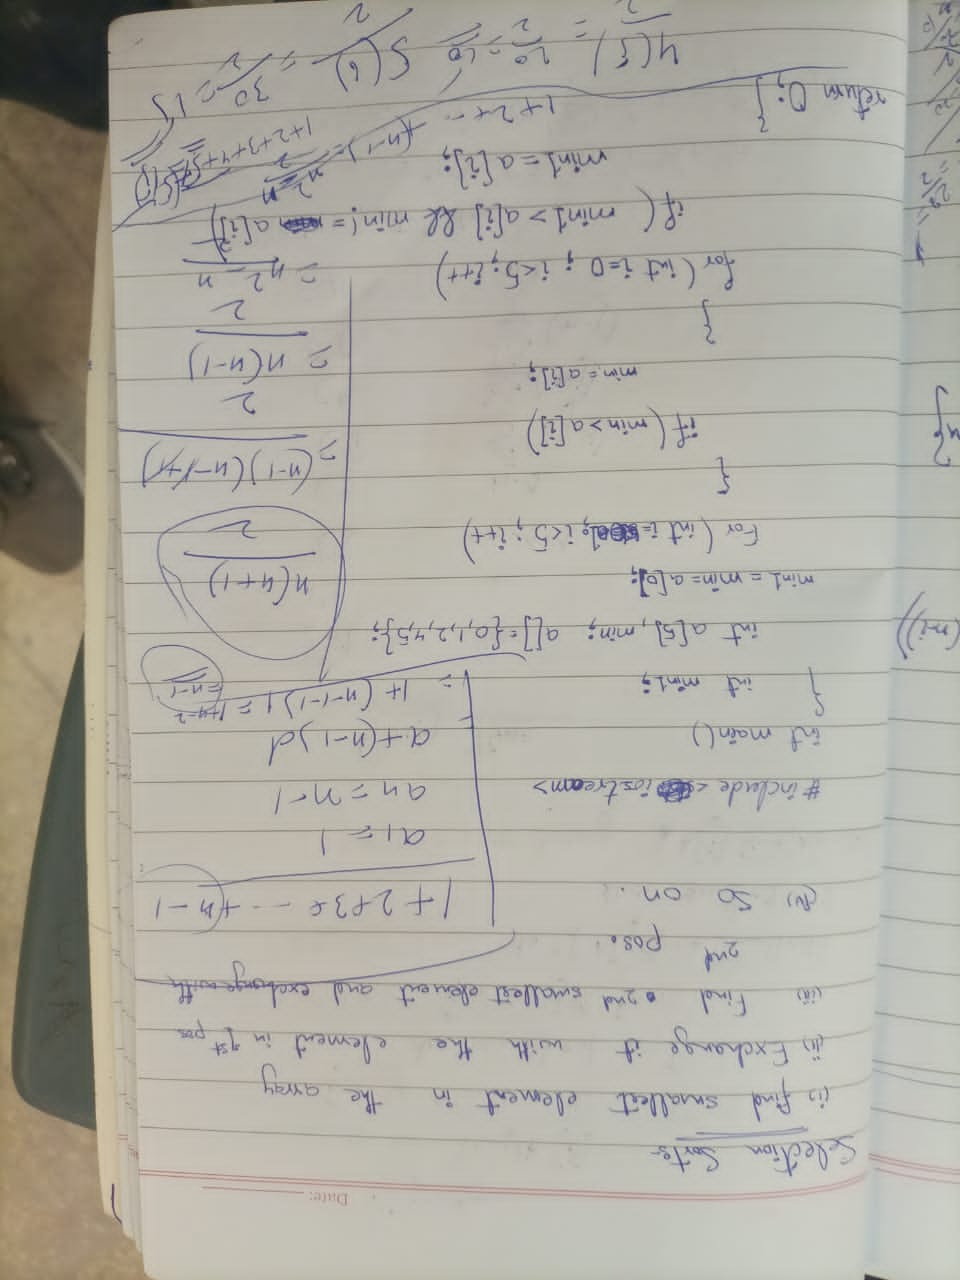 Date:
Selection Sort:-
(i) find smallest element in the array
(ii) Exchange it with the element in 1st pos
(iii) Find 2nd smallest element and exchange with
2nd pos.
(iv) So on.
# include <iostream>
int main()
{
int min1;
int a[5], min; a[]={0,1,2,4,5};
min1 = min = a[0];
For (int i=0; i<5; i++)
{
if (min>a[i])
min = a[i];
}
for (int i=0; i<5; i++)
if (min1 > a[i] && min != a[i])
min1 = a[i];
}
return 0;
1+2+3+ ---- +n-1
a1 = 1
an = n-1
a+(n-1)d
= 1+(n-1-1)1 = 1+n-2
= n-1
n(n+1)
2
= (n-1)(n-1+1)
2
= n(n-1)
2
= n²-n
2
1+2+ --
+(n-1) = n²-n
2
4(5)
2
= 20
2
= 10
5(6)
2
= 30
2
= 15